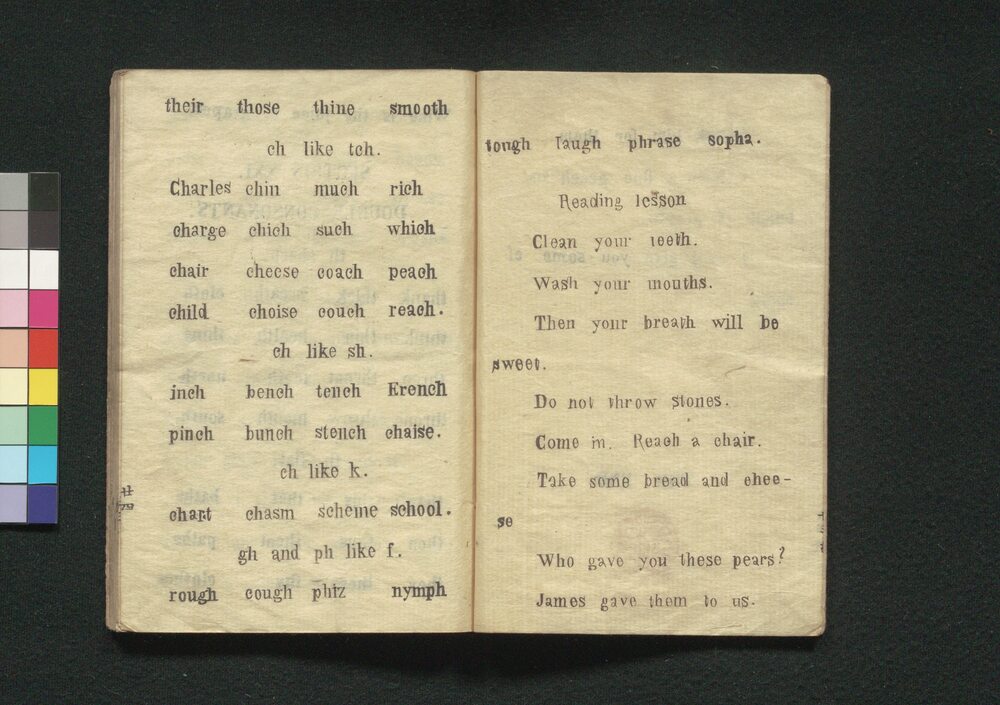 their those thine smooth
ch like tch.
Charles chin much rich
charge chich such which
chair cheese coach peach
child choise couch reach.
ch like sh.
inch bench tench Erench
pinch bunch stench chaise.
ch like k.
chart chasm scheme school.
gh and ph like f.
rough cough phiz nymph
tough laugh phrase sopha.
Reading lesson
Clean your teeth.
Wash your mouths.
Then your breath will be
sweet.
Do not throw stones.
Come in. Reach a chair.
Take some bread and chee-
se
Who gave you these pears?
James gave them to us.